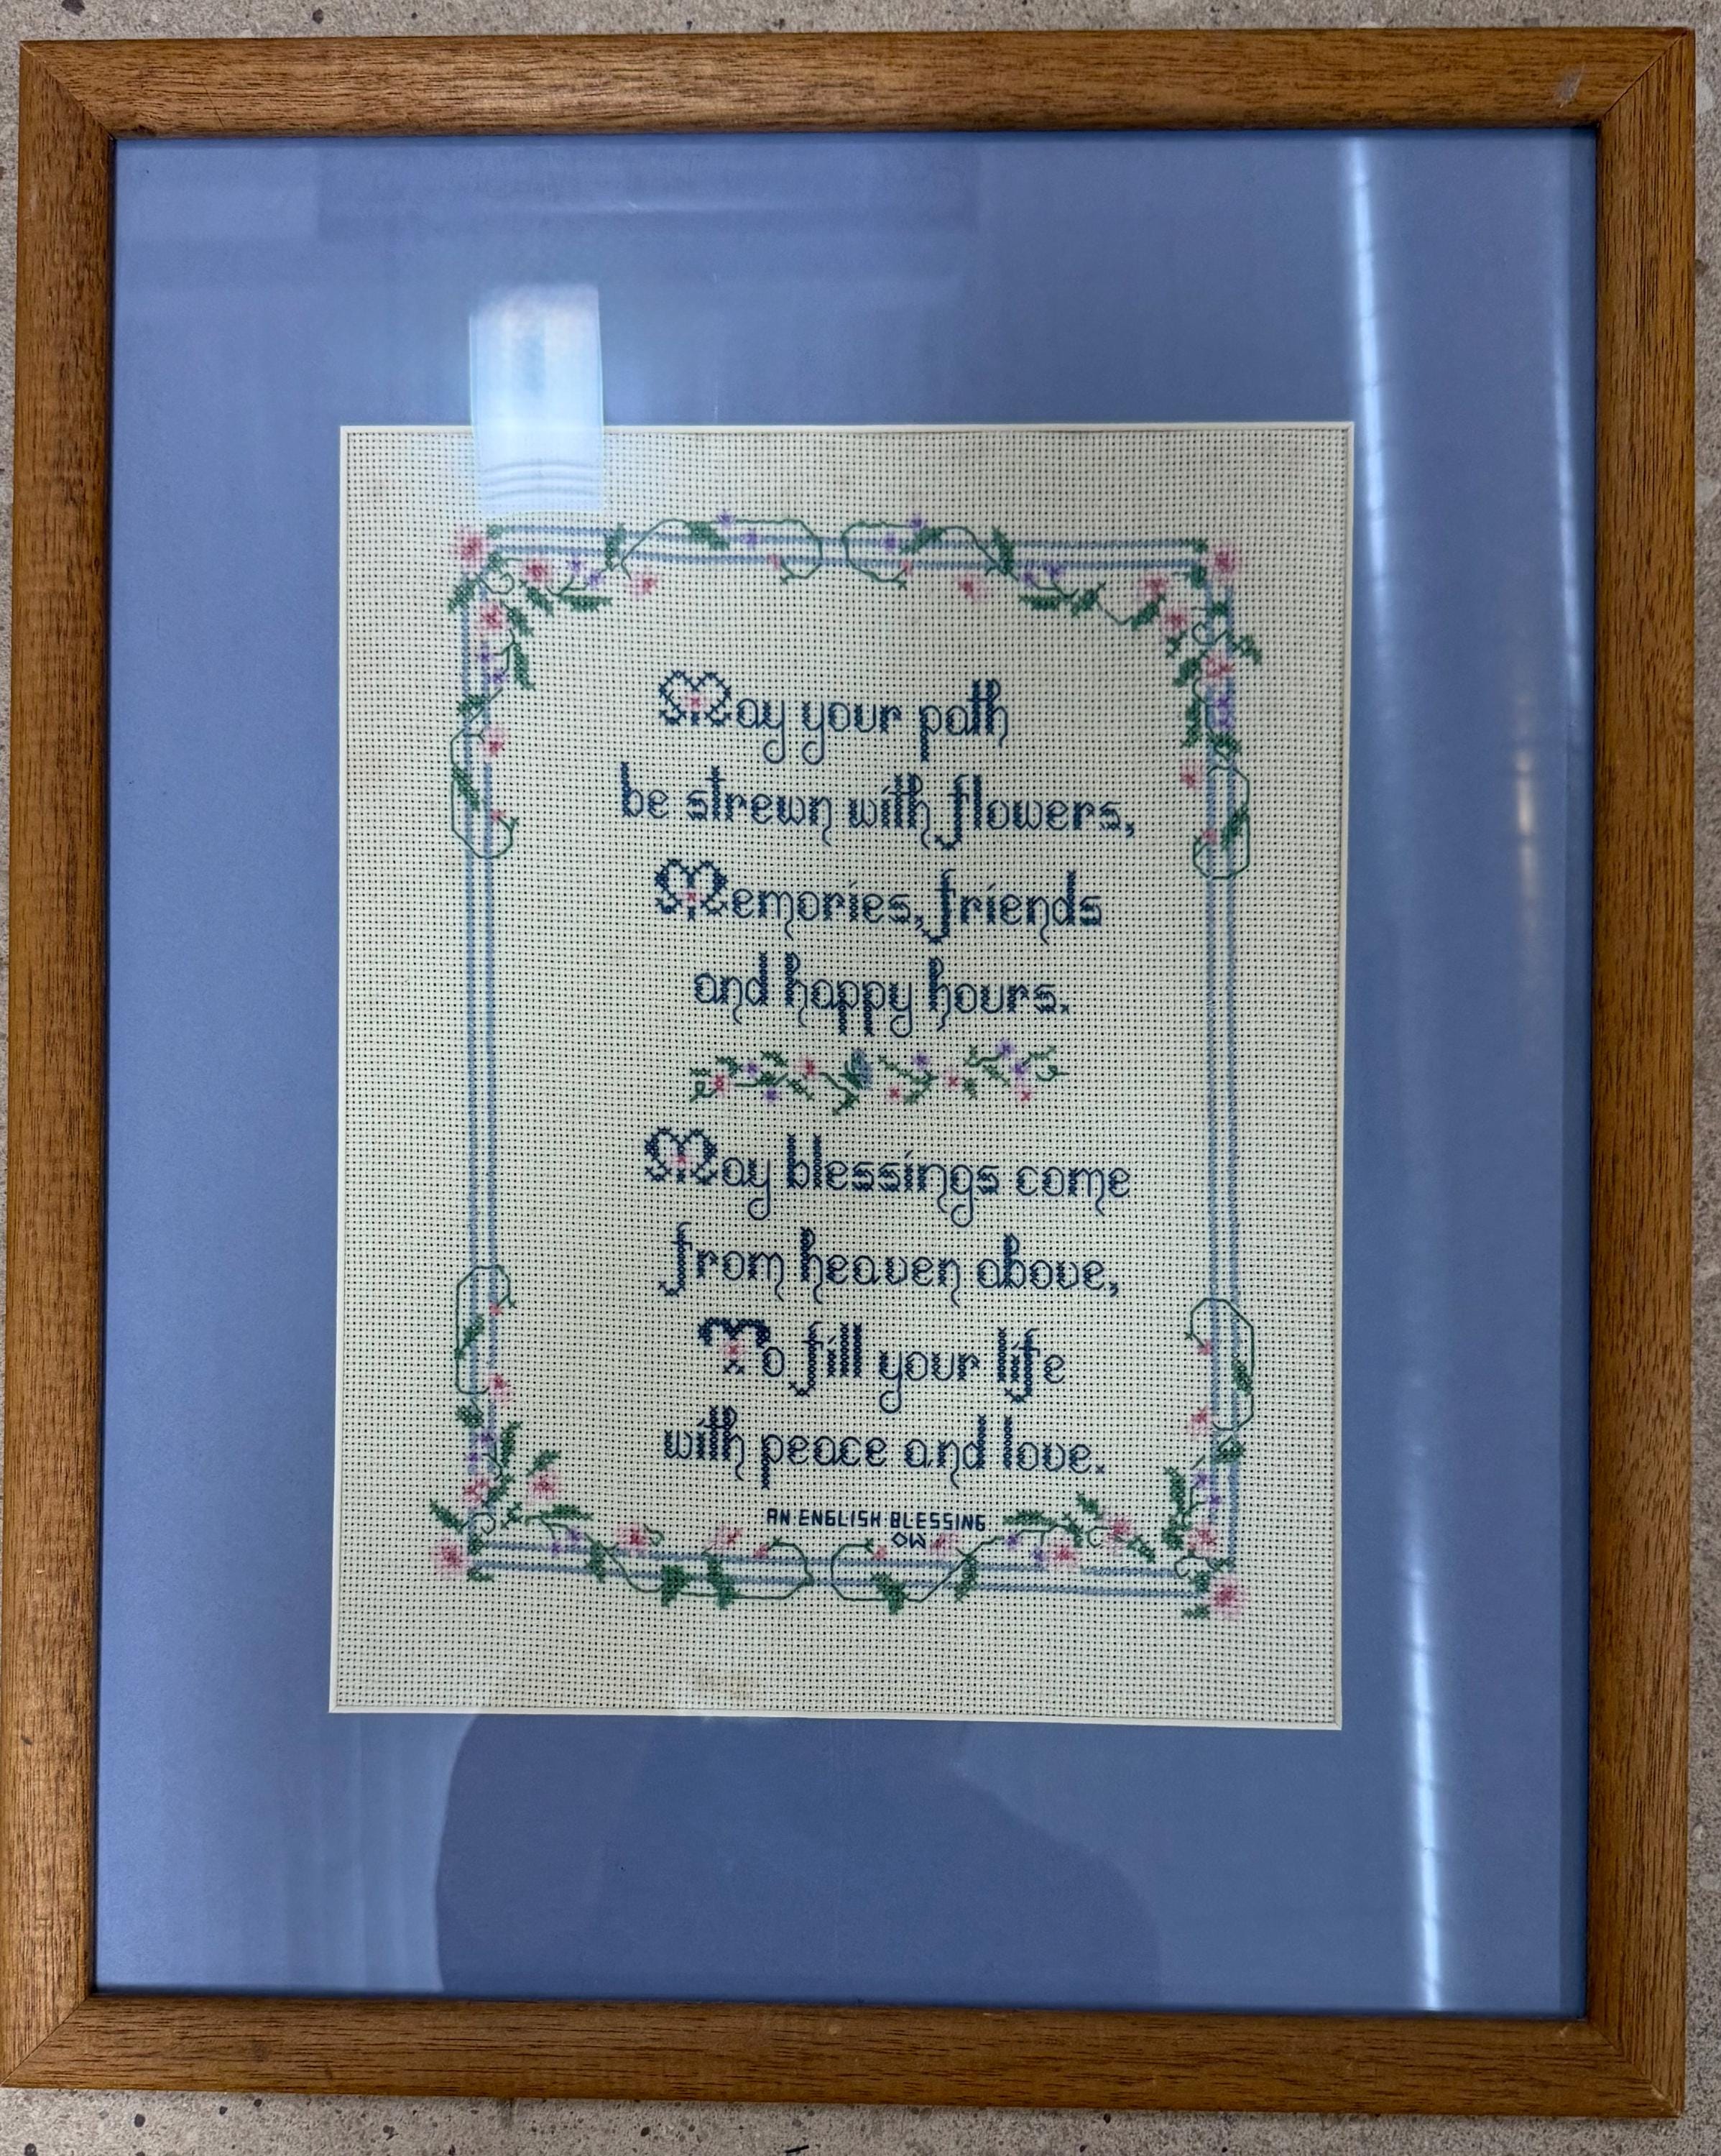 May your path
be strewn with flowers,
Memories, friends
and happy hours.
May blessings come
from heaven above,
To fill your life
with peace and love.
AN ENGLISH BLESSING